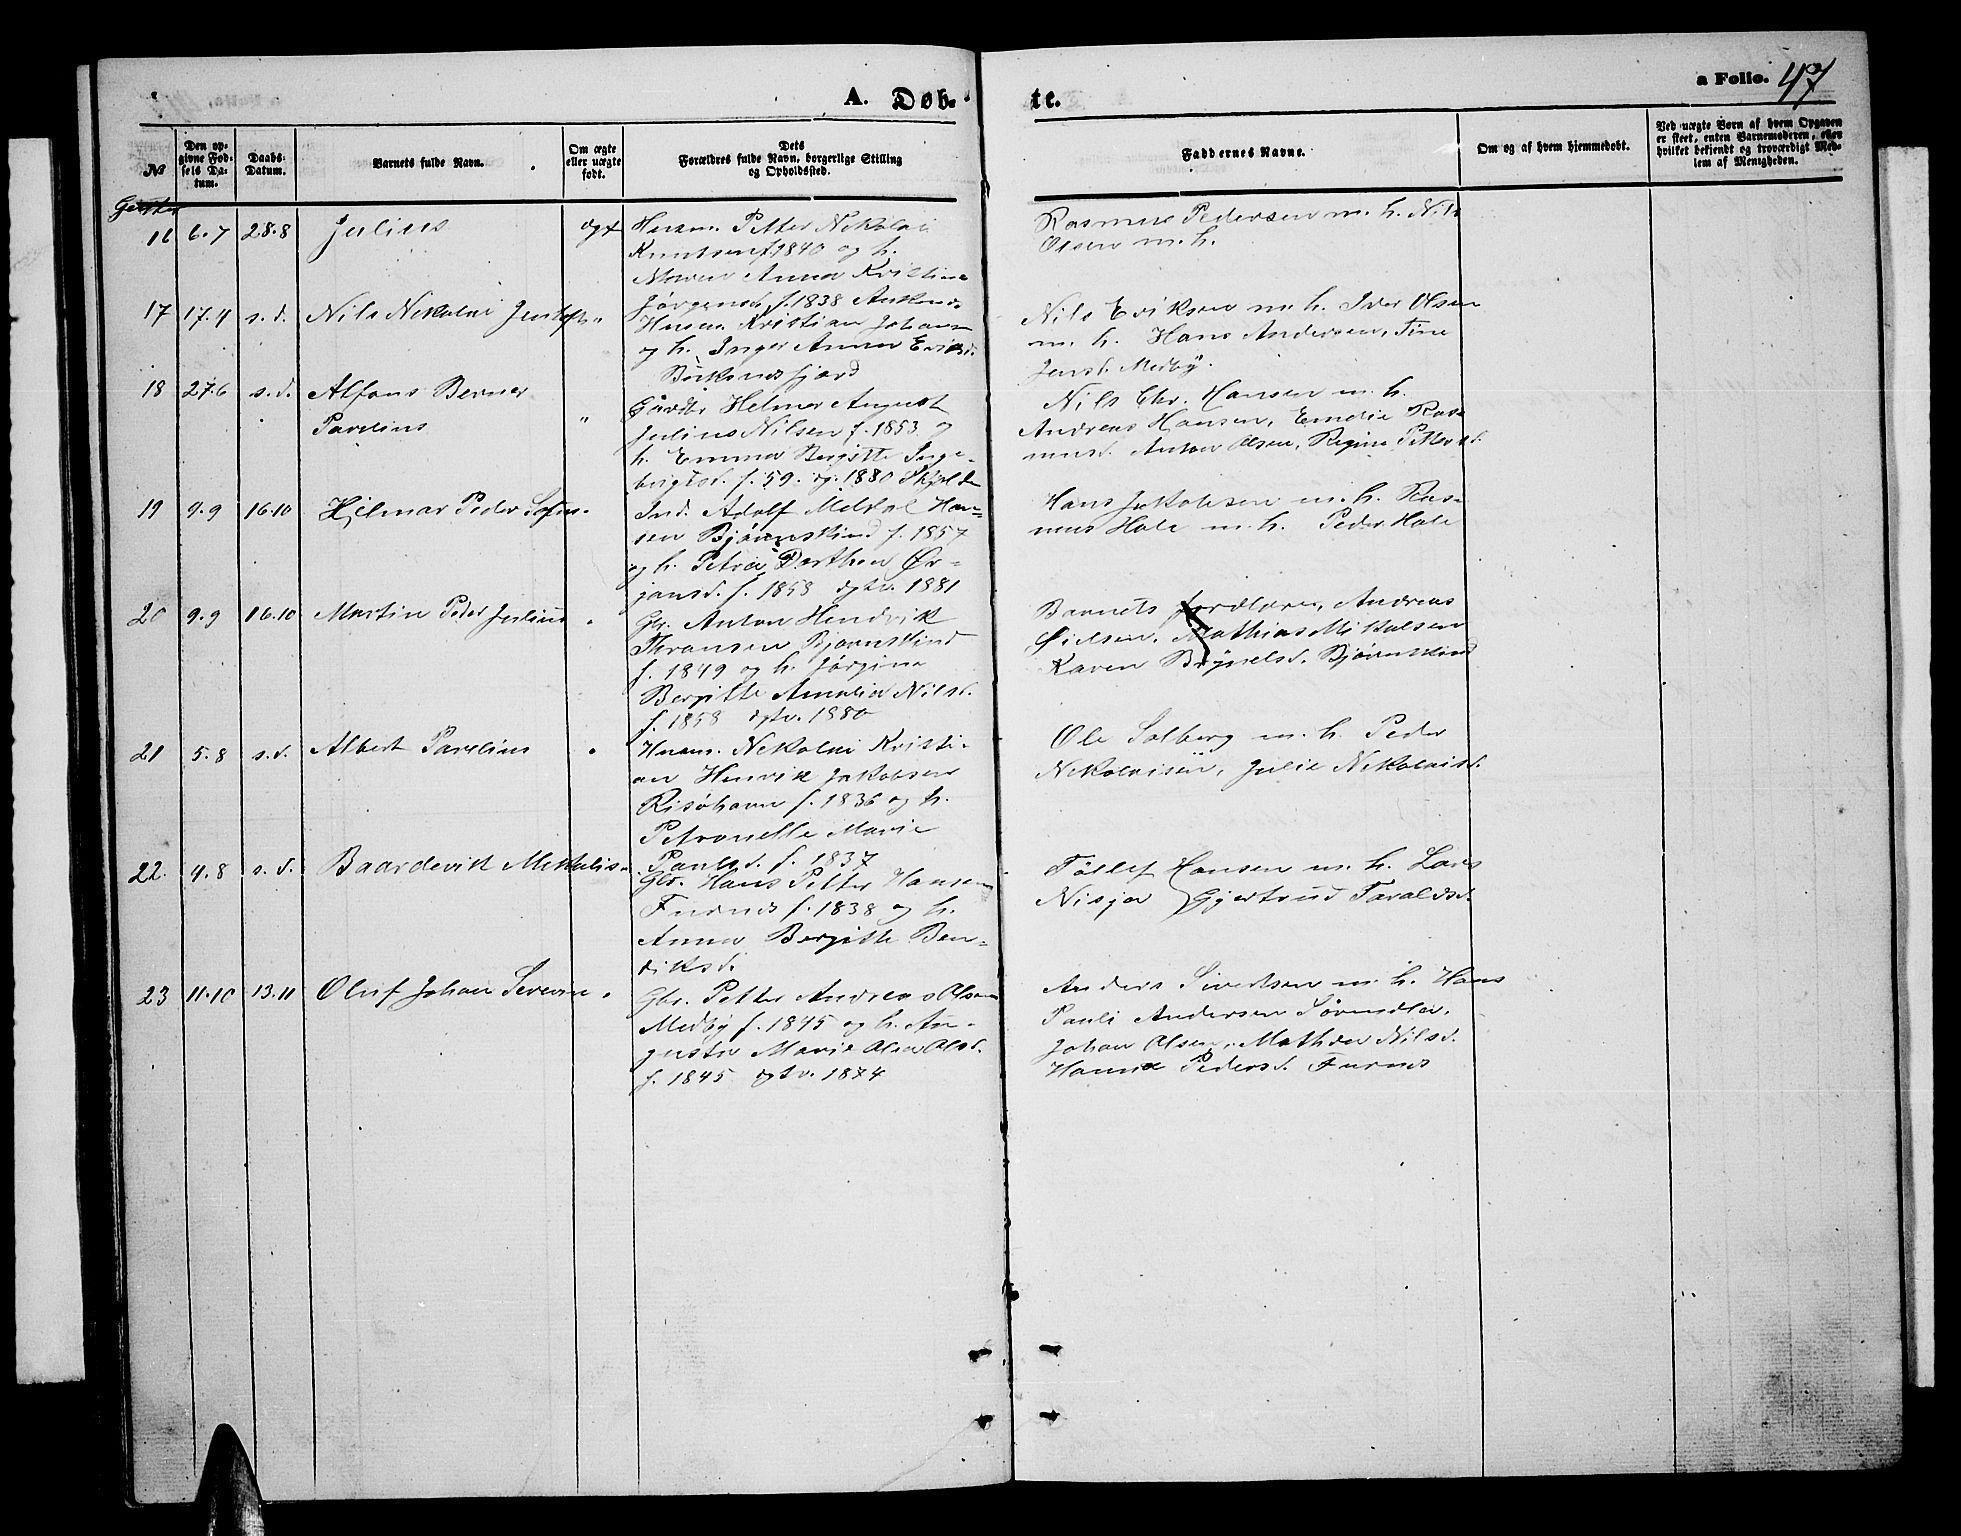 A. Døb-
te.
a Folio. 47
No
Den op-
givne Fød-
sels Da-
tum.
Daabs-
Datum.
Barnets fulde Navn.
Om ægte
eller uægte
født.
Dets
Forældres fulde Navn, borgerlige Stilling
og Opholdssted.
Faddernes Navne.
Om og af hvem hjemmedøbt.
Ved uægte Børn af hvem Opgaven
er skeet, enten Barnemoderen, eller
hvilket bekjendt og troværdigt Med-
lem af Menigheden.
16 6.7 28.8 Julius ægt
Husm. Petter Nikolai
Knutsen f. 1840 og h.
Maren Anna Kristine
Jørgensd. f. 1838
Rasmus Pedersen m. h. Nils
Olsen m. h.
17 17.4 s.d. Nils Nikolai "
Husm. Kristian Johans
og h. Inger Anna
Buksnesfjord
Nils Eriksen m. h. Iver Olsen
m. h. Hans Andersen, Tine
Jensd. Medby.
18 27.6 s.d. Alfons Berner
Parelius "
Gårdbr. Helmer August
Julius Nilsen f. 1853 og
h. Emma Bergitte Inge-
brigtsd. f. 59. 1880
Nils Chr. Hansen m. h.
Andreas Hansen, Emelie Ras
musd. Anton Olsen, Regine
19 9.9 16.10 Hjelmar Peder "
Ind. Adolf Meldal Han-
sen Bjørnskind f. 1857
og h. Petra Dorthea Ør-
jansd. f. 1858 1881
Hans Jakobsen m. h. Ras-
mus Hole m. h. Peder Hole
20 9.9 16.10 Martin Peder Julius "
Gbr. Anton Hendrik
Thransen Bjørnskind
f. 1849 og h. Jørgine
Bergitte Amalia Nilsd.
f. 1858 ægtv. 1880
Barnets forældre, Andreas
Mathias Mikalsen
Karen Bjørnskind
21 5.8 s.d. Albert Parelius "
Husm. Nikolai Kristi-
an Henrik Jakobsen
Risøhavn f. 1836 og h.
Petronelle Marie
Paulsd. f. 1837
Ole Solberg m. h. Peder
Nikolaisen, Julie Nikolaisd.
22. 4.8 s.d. Baardevik "
Gbr. Hans Petter Hansen
Furnes f. 1838 og h.
Anna Bergitte Ben-
diksd.
Tollef Hansen m. h. Lars
Gjertrud Taraldsd.
23 11.10 13.11 Oluf Johan "
Gbr. Petter Andreas Olsen
Medby f. 1845 og h. Au-
gusta Marie Olsd.
f. 1845 ægtv. 1874
Anders Sivertsen m. h. Hans
Pauli Andersen
Johan Olsen, Mathea Nilsd.
Hanna Pedersd. Furnes